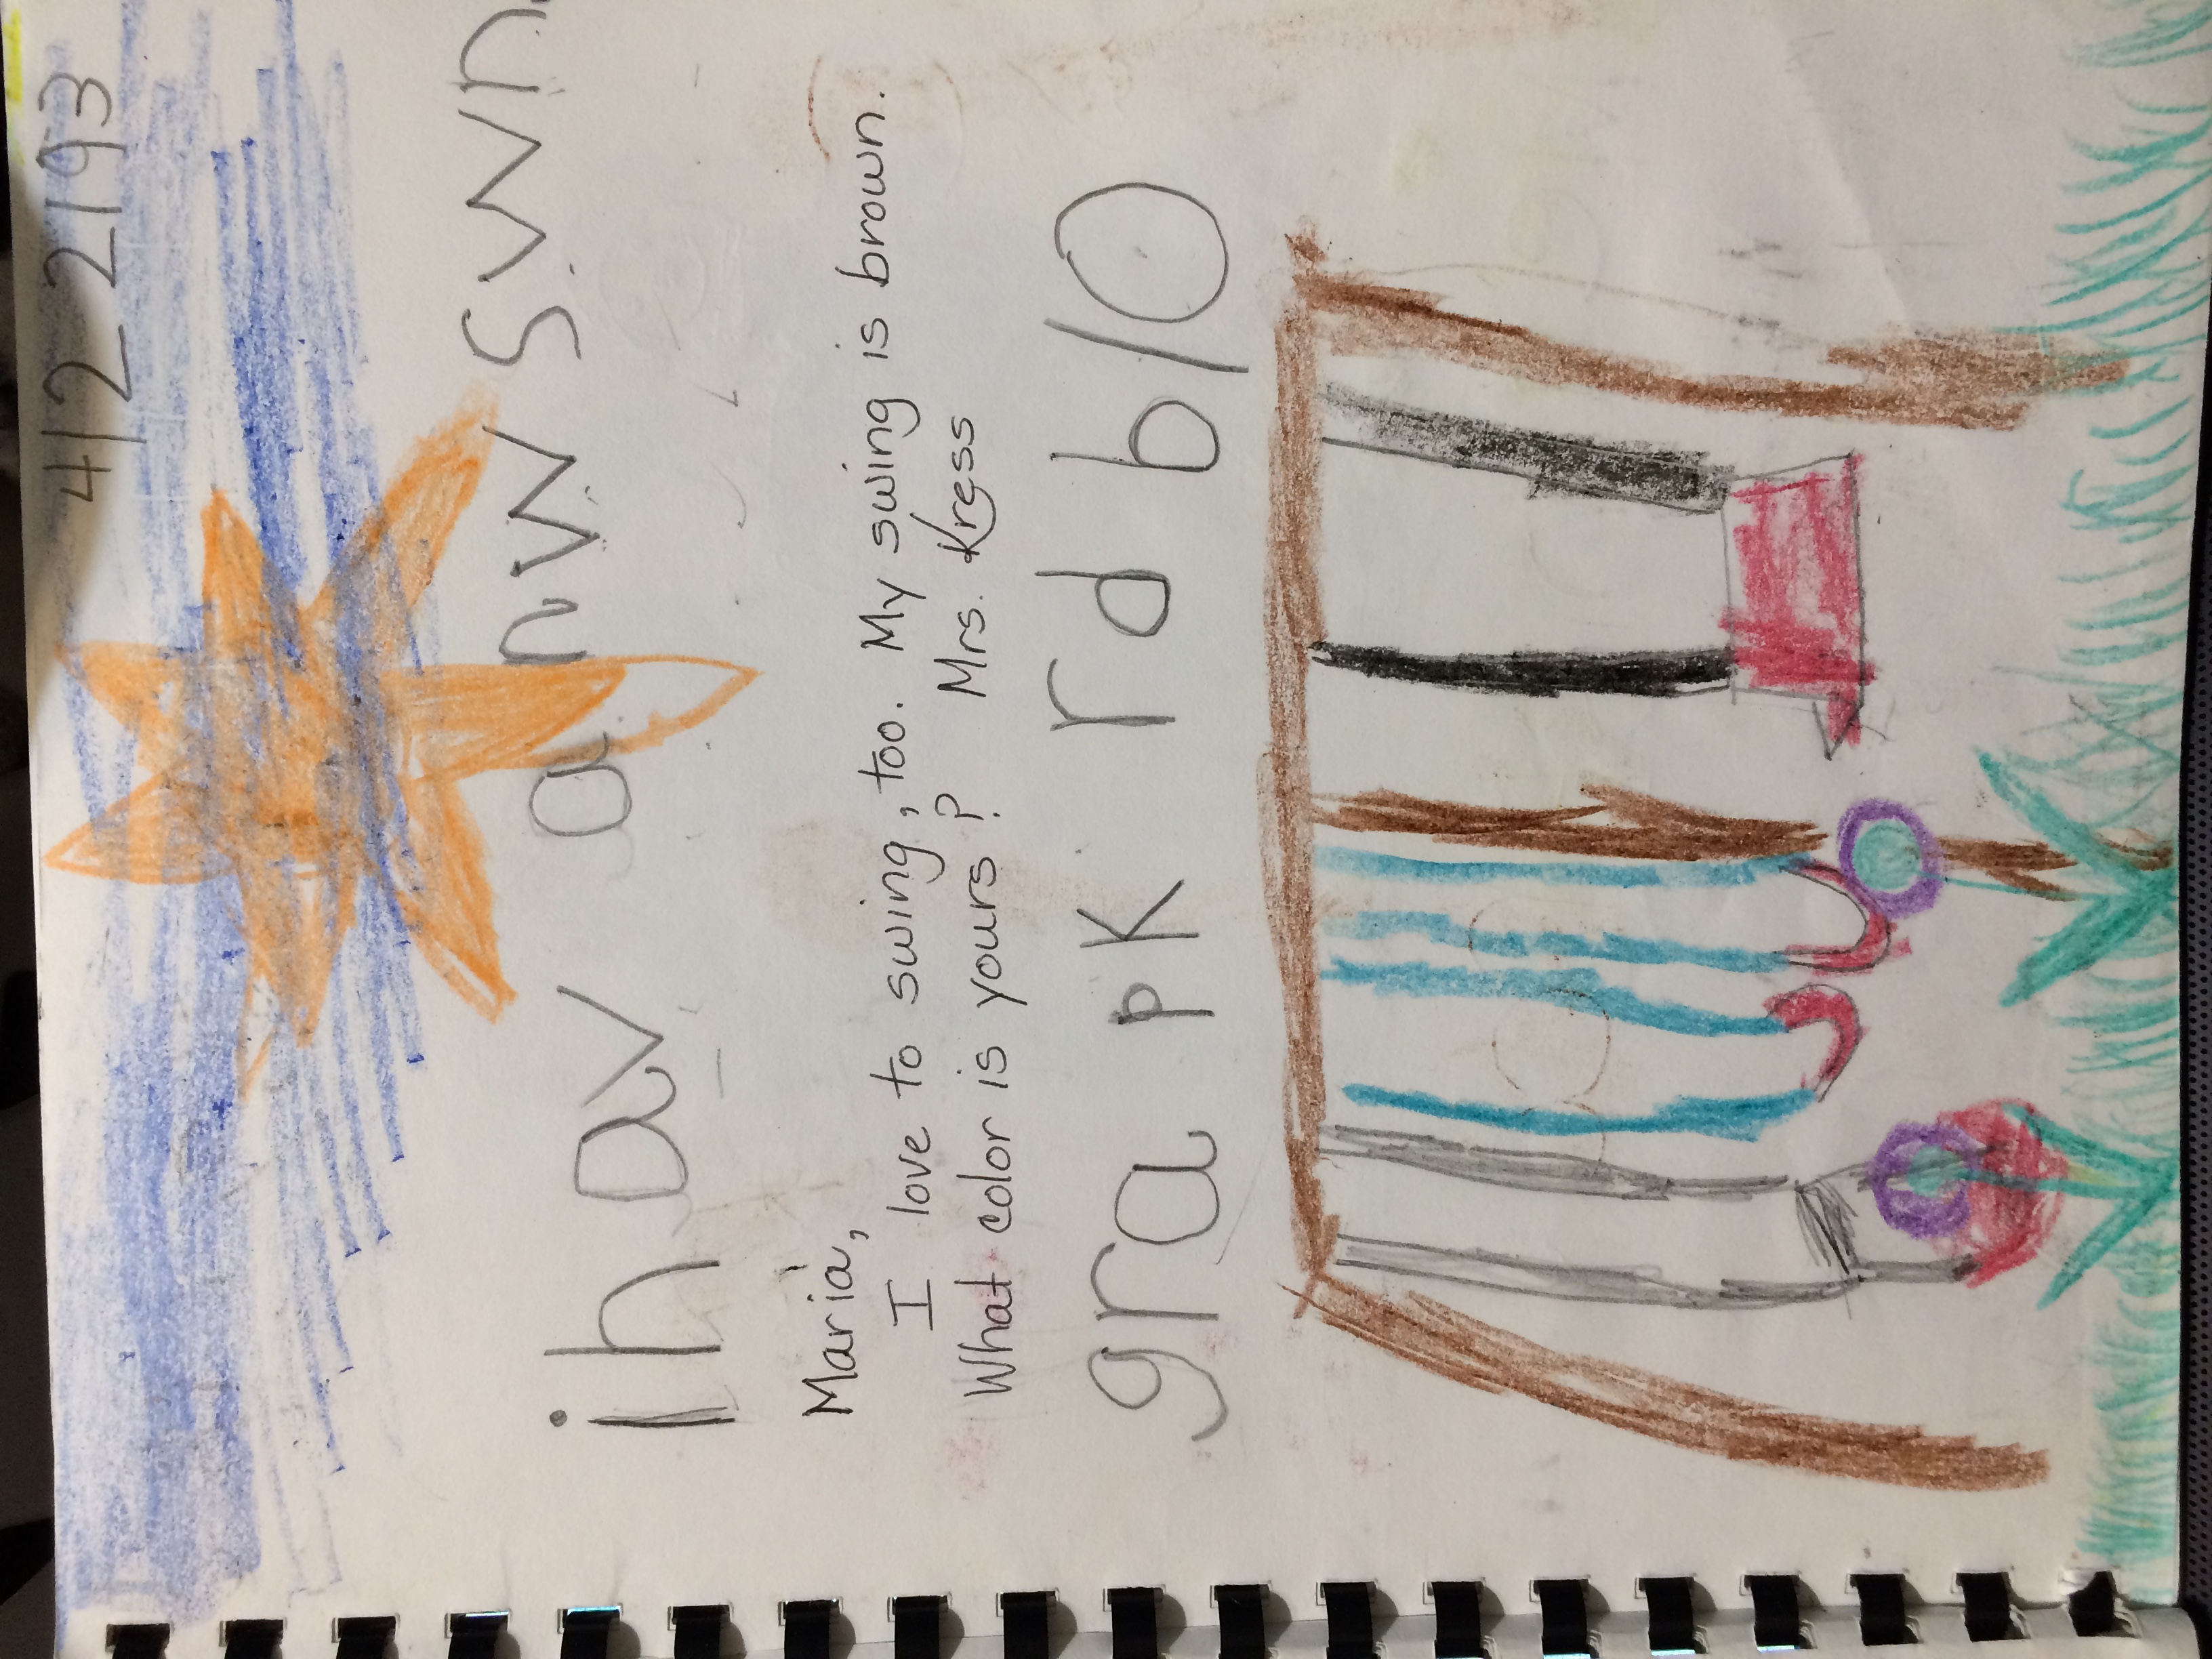 4/22/93
i hav a nw swn
Maria,
I love to swing, too. My swing is brown.
What color is yours? Mrs. Kress
gra pK rd blO